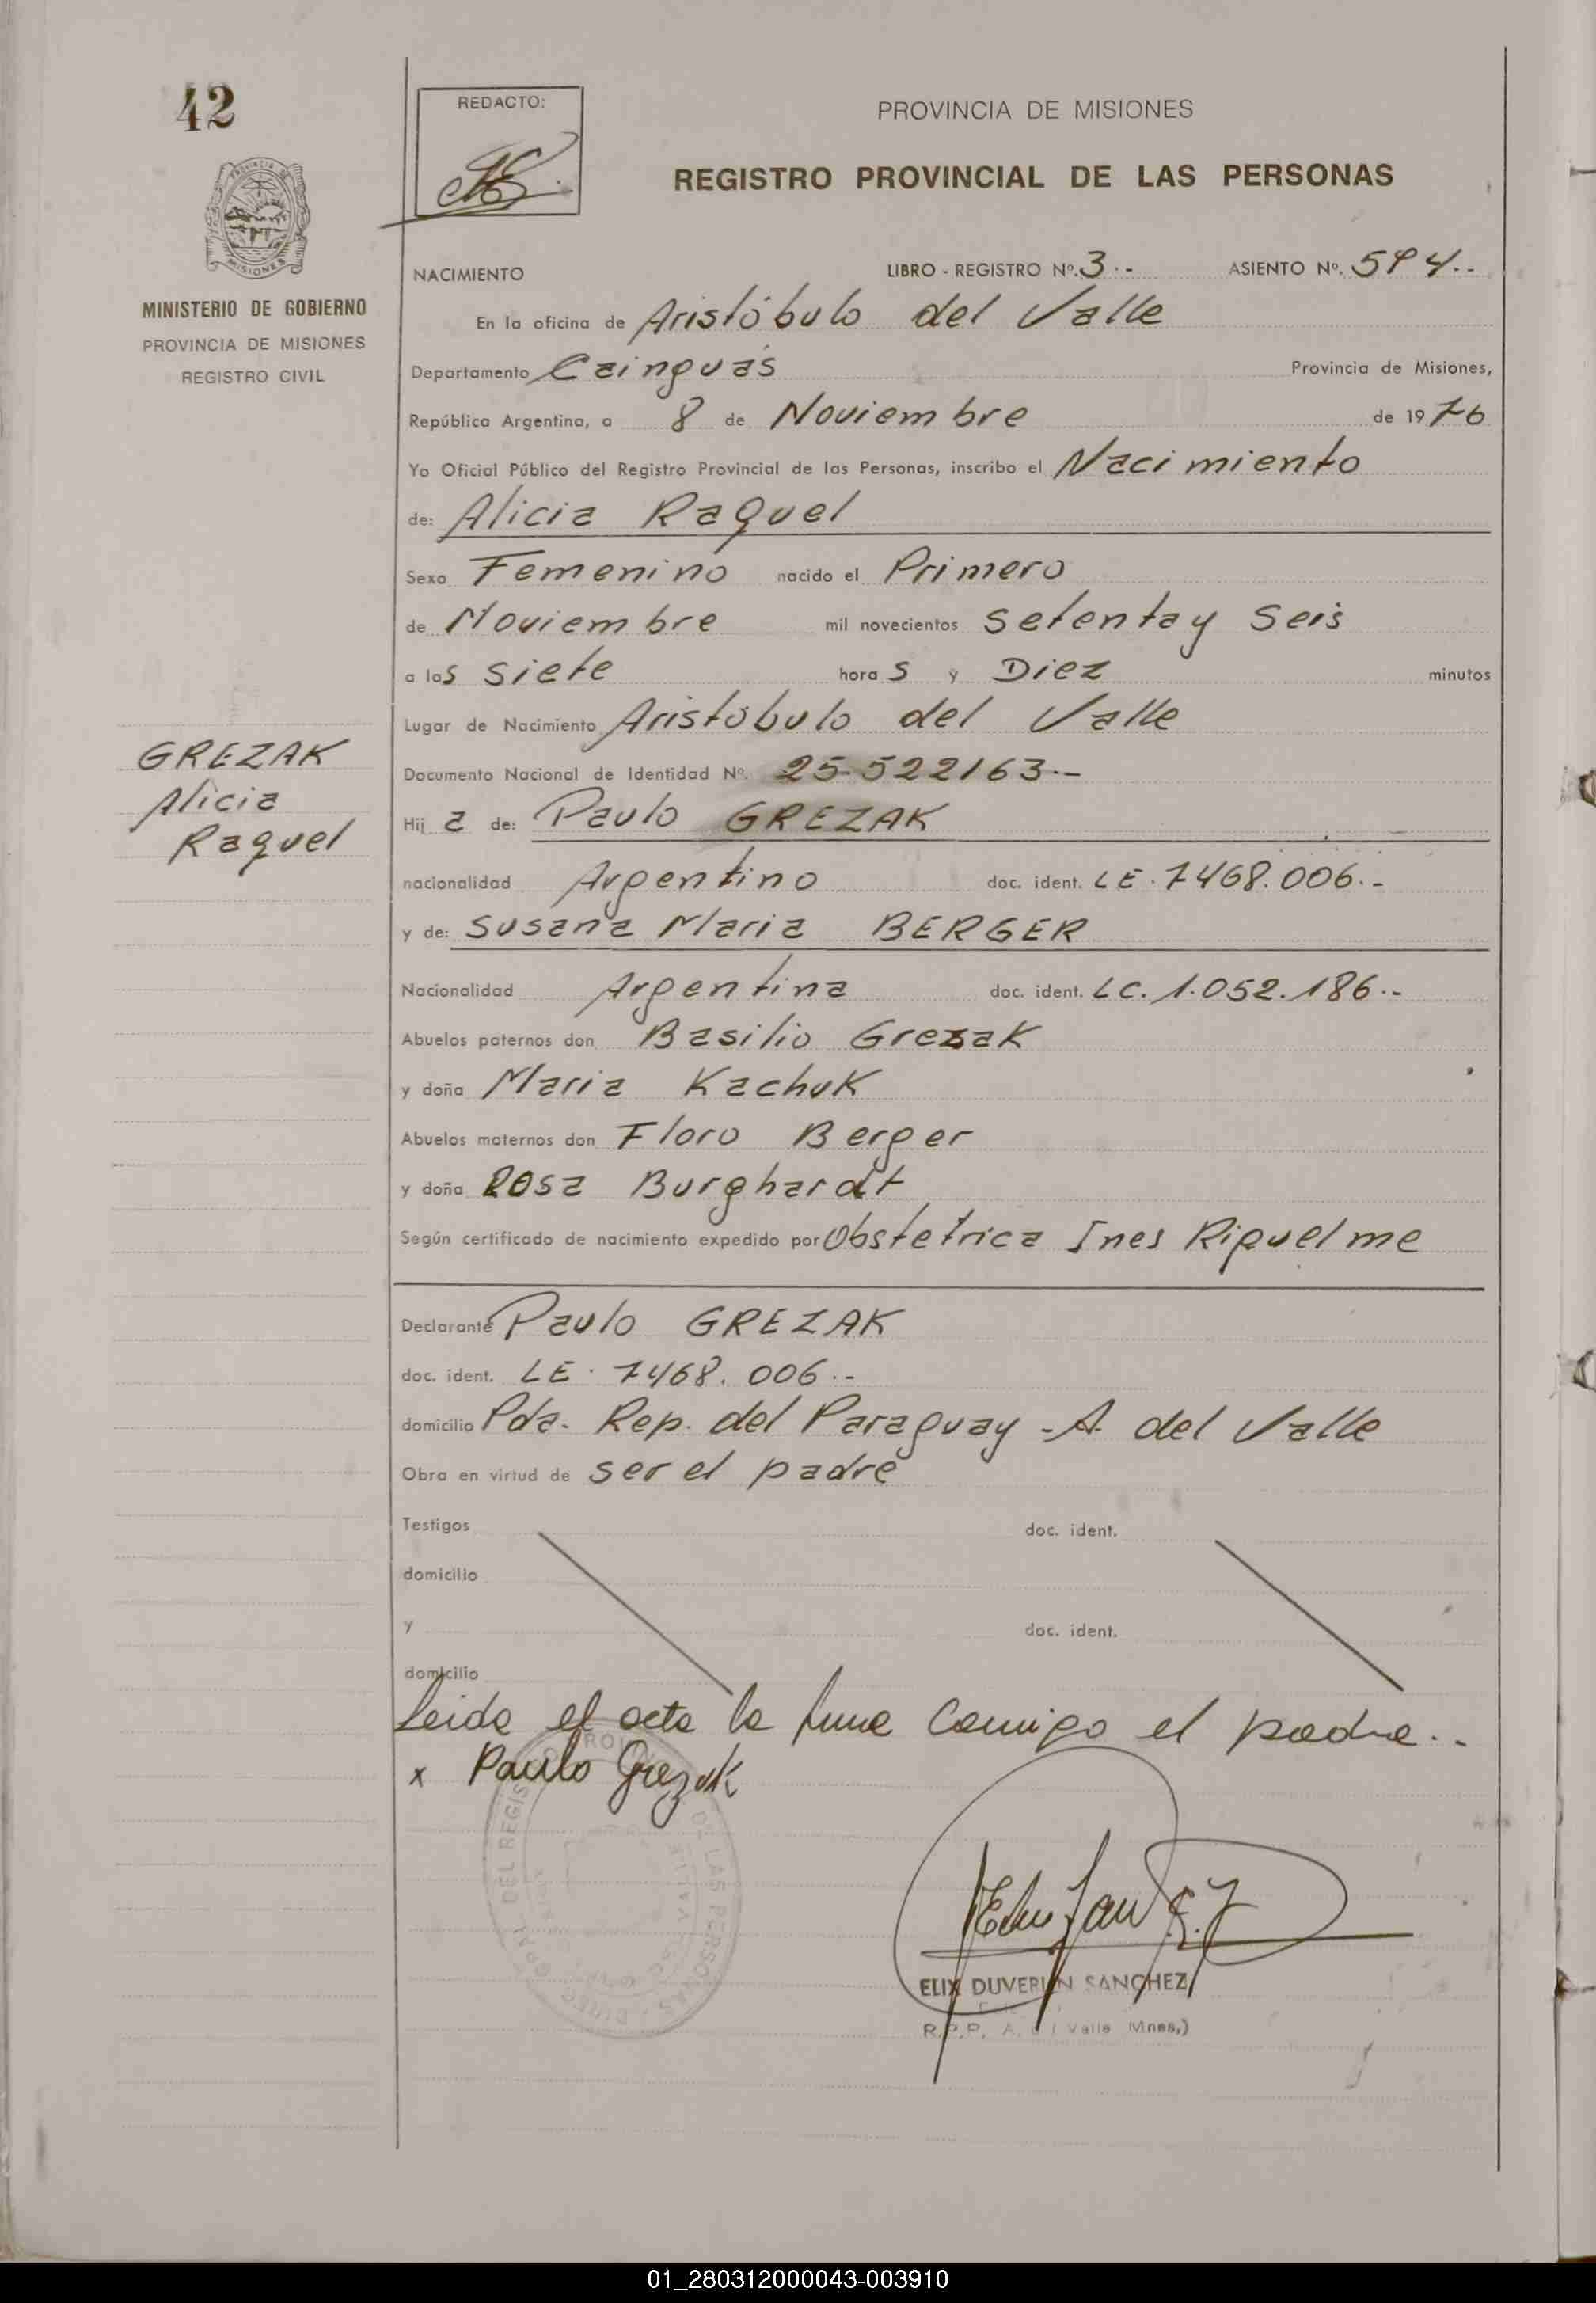 42
REDACTO:
PROVINCIA DE MISIONES
REGISTRO PROVINCIAL DE LAS PERSONAS
MISIONES
MINISTERIO DE GOBIERNO
PROVINCIA DE MISIONES
REGISTRO CIVIL
NACIMIENTO LIBRO - REGISTRO Nº. 3.- ASIENTO Nº. 594.-
En la oficina de Aristóbulo del Valle
Departamento Cainguás Provincia de Misiones,
República Argentina, a 8 de Noviembre de 1976
Yo Oficial Público del Registro Provincial de las Personas, inscribo el Nacimiento
de: Alicia Raquel
Sexo Femenino nacido el Primero
de Noviembre mil novecientos setenta y Seis
a las siete horas y Diez minutos
Lugar de Nacimiento Aristóbulo del Valle
GREZAK
Alicia
Raquel
Documento Nacional de Identidad Nº. 25.522163.-
Hija de: Paulo GREZAK
nacionalidad Argentino doc. ident. LE. 7468.006.-
y de: Susana Maria BERGER
Nacionalidad Argentina doc. ident. LC. 1.052.186.-
Abuelos paternos don Basilio Grezak
y doña Maria Kachuk
Abuelos maternos don Floro Berger
y doña Rosa Burghardt
Según certificado de nacimiento expedido por Obstetrica Ines Riquelme
Declarante Paulo GREZAK
doc. ident. LE. 7468.006.-
domicilio Pda. Rep. del Paraguay - A. del Valle
Obra en virtud de ser el padre
Testigos doc. ident.
domicilio
y doc. ident.
domicilio
Leida el acta la firma conmigo el padre.-
x Paulo Grezak
ELIX DUVERLIN SANCHEZ
R.P.P. A. d Valle Mnes,)
01_280312000043-003910